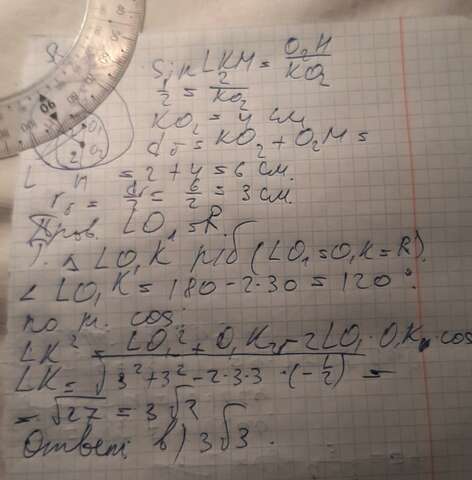 Sin LKM = O₂H / KO₂
1/2 = 2 / KO₂
KO₂ = 4 см
d₅ = KO₂ + O₂M =
= 2 + 4 = 6 см.
r₅ = d₅/2 = 6/2 = 3 см.
Пров. LO₁ = R.
△ LO₁K р/б (LO₁ = O₁K = R).
∠ LO₁K = 180 - 2·30 = 120°.
по т. cos:
LK² = LO₁² + O₁K² - 2LO₁·O₁K·cos
LK = √3² + 3² - 2·3·3·(-1/2) =
= √27 = 3√3
Ответ: в) 3√3.